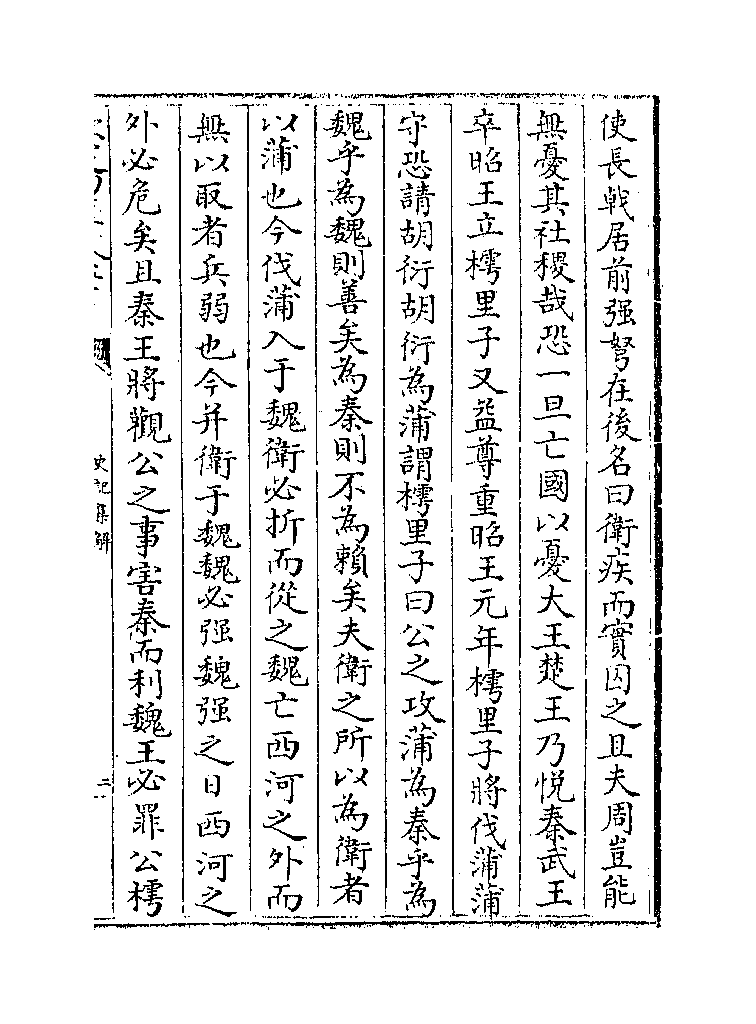 使長戟居前强弩在後名曰衛疾而實囚之且夫周豈能
無憂其社稷哉恐一旦亡國以憂大王楚王乃悦秦武王
卒昭王立樗里子又益尊重昭王元年樗里子將伐蒲蒲
守恐請胡衍胡衍為蒲謂樗里子曰公之攻蒲為秦乎為
魏乎為魏則善矣為秦則不為賴矣夫衛之所以為衛者
以蒲也今伐蒲入于魏衛必折而從之魏亡西河之外而
無以取者兵弱也今并衛于魏魏必强魏强之日西河之
外必危矣且秦王將觀公之事害秦而利魏王必罪公樗
史記集解